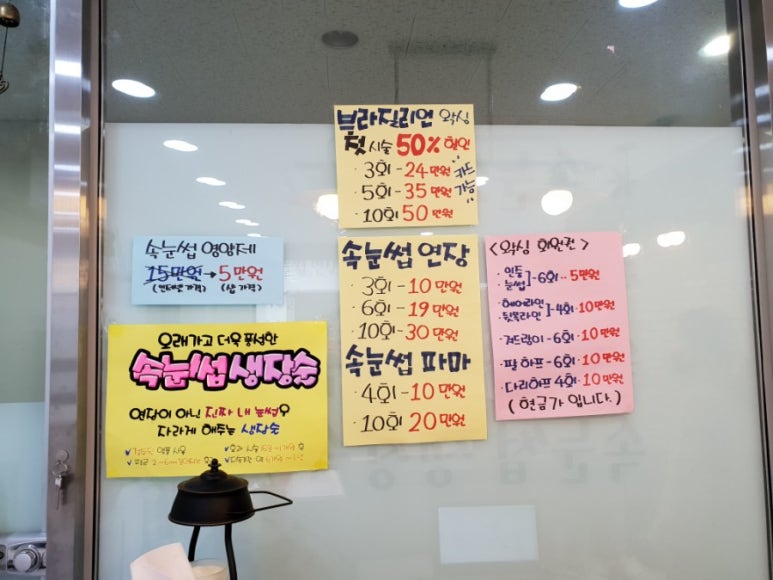 브라질리언 왁싱
첫 시술 50% 할인
· 3회 - 24 만원
· 5회 - 35 만원
· 10회 50 만원
카드
가능
속눈썹 영양제
15만원 → 5 만원
(인터넷 가격) (샵 가격)
속눈썹 연장
· 3회 - 10 만원
· 6회 - 19 만원
· 10회 - 30 만원
속눈썹 파마
· 4회 - 10 만원
· 10회 20 만원
<왁싱 회원권>
· 인중
· 눈썹 ] - 6회 - 5 만원
· 헤어라인
· 뒷목라인 ] - 4회 - 10 만원
· 겨드랑이 - 6회 · 10 만원
· 팔 하프 - 6회 · 10 만원
· 다리하프 4회 · 10 만원
( 현금가 입니다. )
오래가고 더욱 풍성한
속눈썹 생장술
연장이 아닌 진짜 내 눈썹으
자라게 해주는 생장술